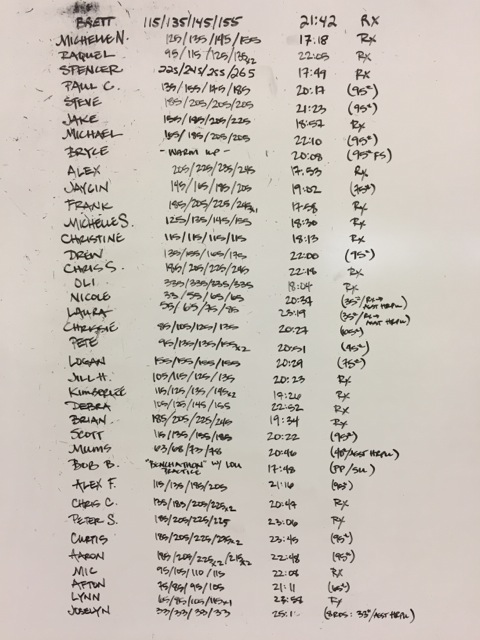 BRETT 115/135/145/155 21:42 RX
MICHELLE N. 125/135/145/155 17:18 RX
RAQUEL 95/115/125/135x2 22:05 RX
SPENCER 225/245/255/265 17:49 RX
PAUL C. 135/155/175/185 20:17 (95#)
STEVE 185/205/205/205 21:23 (95#)
JAKE 155/185/205/225 18:57 RX
MICHAEL 165/185/205/205 22:10 (95#)
BRYCE - WARM UP - 20:08 (95# FS)
ALEX 205/225/235/245 17:53 RX
JAYLIN 145/165/185/205 19:02 (75#)
FRANK 185/205/225/245x1 17:58 RX
MICHELLE S. 125/135/145/155 18:30 RX
CHRISTINE 115/115/115/115 18:13 RX
DREW 135/155/165/175 22:00 (95#)
CHRIS S. 185/205/225/245 22:18 RX
OLI 335/335/335/335 18:04 RX
NICOLE 33/55/65/65 20:34 (35#/RX→ ASST HRPU)
LAURA 55/65/75/85 23:19 (35#/RX→ ASST HRPU)
CHRISSIE 85/105/125/135 20:27 (65#)
PETE 95/135/135/155x2 20:51 (95#)
LOGAN 155/155/155/155 20:29 (75#)
JILL H. 105/115/125/135 20:23 RX
KIMBERLEE 115/125/135/145x2 19:26 RX
DEBRA 105/125/145/155 22:52 RX
BRIAN 185/205/225/245 19:34 RX
SCOTT 115/135/155/185 20:22 (95#)
MUMS 63/68/73/78 20:46 (ASST HRPU)
BOB B. "BENCHATHON" W/ LOU PRACTICE 17:48 (PP/SU)
ALEX F. 115/135/185/205 21:16 (95#)
CHRIS C. 135/185/205/225x2 20:47 RX
PETER S. 185/205/225/225 23:06 RX
CURTIS 185/205/225/235x2 23:45 (95#)
AARON 185/205/225x2/215x2 22:48 (95#)
MIC 95/105/110/115 22:08 RX
AFTON 75/85/95/105 21:11 (65#)
LYNN 65/85/105/115x1 23:58 RX
JOSELYN 33/33/33/33 25:1- (3RDS: 33#/ASST HRPU)